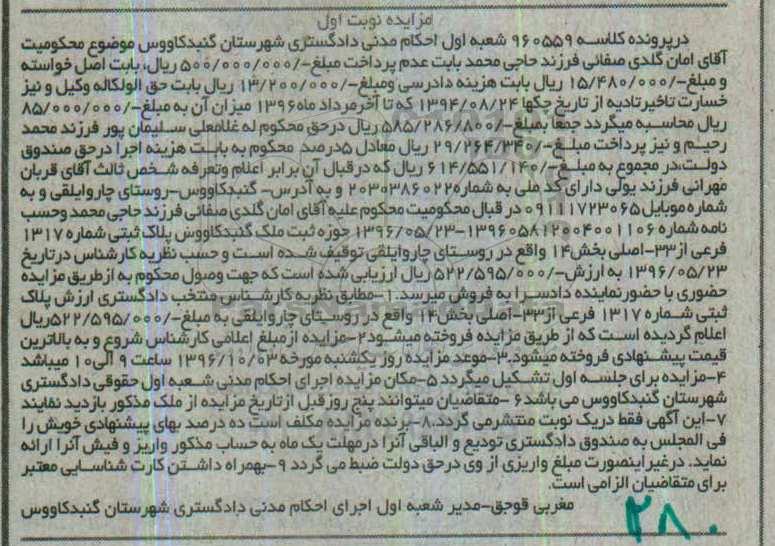 مزایده نوبت اول
درپرونده کلاسه ۹۶۰۵۵۹ شعبه اول احکام مدنی دادگستری شهرستان گنبدکاووس موضوع محکومیت
آقای امان گلدی صفائی فرزند حاجی محمد بابت عدم پرداخت مبلغ-/۵۰۰/۰۰۰/۰۰۰ ریال، بابت اصل خواسته
و مبلغ-/۱۵/۴۸۰/۰۰۰ ریال بابت هزینه دادرسی ومبلغ-/۱۳/۲۰۰/۰۰۰ ریال بابت حق الوکاله وکیل و نیز
خسارت تاخیرتادیه از تاریخ چکها ۱۳۹۴/۰۸/۲۴ که تا آخرمرداد ماه۱۳۹۶ میزان آن به مبلغ-/۸۵/۰۰۰/۰۰۰
ریال محاسبه میگردد جمعا بمبلغ-/۵۸۵/۲۸۶/۸۰۰ ریال درحق محکوم له غلامعلی سلیمان پور فرزند محمد
رحیم و نیز پرداخت مبلغ-/۲۹/۲۶۴/۳۴۰ ریال معادل ۵درصد محکوم به بابت هزینه اجرا درحق صندوق
دولت،در مجموع به مبلغ-/۶۱۴/۵۵۱/۱۴۰ ریال که درقبال آن برابر اعلام وتعرفه شخص ثالث آقای قربان
مهرانی فرزند یولی دارای کد ملی به شماره۲۰۳۰۳۸۶۰۲۲ و به آدرس- گنبدکاووس-روستای چارواپلقی و به
شماره موبایل ۰۹۱۱۱۷۲۳۰۶۵ در قبال محکومیت محکوم علیه آقای امان گلدی صفائی فرزند حاجی محمد وحسب
نامه شماره ۱۳۹۶۰۵۸۱۲۰۰۴۰۰۱۱۰۶-۱۳۹۶/۰۵/۲۳ حوزه ثبت ملک گنبدکاووس پلاک ثبتی شماره ۱۳۱۷
فرعی از۳۳-اصلی بخش۱۴ واقع در روستای چارواپلقی توقیف شده است و حسب نظریه کارشناس درتاریخ
۱۳۹۶/۰۵/۲۳ به ارزش-/۵۲۲/۵۹۵/۰۰۰ ریال ارزیابی شده است که جهت وصول محکوم به ازطریق مزایده
حضوری با حضورنماینده دادسرا به فروش میرسد.۱-مطابق نظریه کارشناس منتخب دادگستری ارزش پلاک
ثبتی شماره ۱۳۱۷ فرعی از۳۳-اصلی بخش۱۴ واقع در روستای چارواپلقی به مبلغ-/۵۲۲/۵۹۵/۰۰۰ریال
اعلام گردیده است که از طریق مزایده فروخته میشود۲-مزایده ازمبلغ اعلامی کارشناس شروع و به بالاترین
قیمت پیشنهادی فروخته میشود.۳-موعد مزایده روز یکشنبه مورخه ۱۳۹۶/۱۰/۰۳ ساعت ۹ الی۱۰ میباشد
۴-مزایده برای جلسه اول تشکیل میگردد ۵-مکان مزایده اجرای احکام مدنی شعبه اول حقوقی دادگستری
شهرستان گنبدکاووس می باشد۶ -متقاضیان میتوانند پنج روزقبل ازتاریخ مزایده از ملک مذکور بازدید نمایند
۷-این آگهی فقط دریک نوبت منتشرمی گردد.۸-برنده مزایده مکلف است ده درصد بهای پیشنهادی خویش را
فی المجلس به صندوق دادگستری تودیع و الباقی آنرا درمهلت یک ماه به حساب مذکور واریز و فیش آنرا ارائه
نماید. درغیراینصورت مبلغ واریزی از وی درحق دولت ضبط می گردد ۹-بهمراه داشتن کارت شناسایی معتبر
برای متقاضیان الزامی است.
مغربی قوجق-مدیر شعبه اول اجرای احکام مدنی دادگستری شهرستان گنبدکاووس
۲۸۰